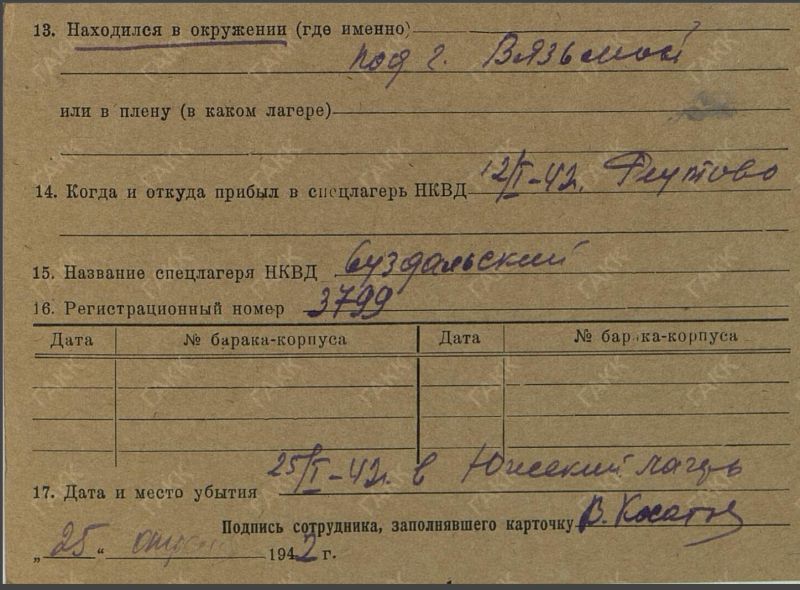 13. Находился в окружении (где именно)
под г. Вязьмой
или в плену (в каком лагере)
14. Когда и откуда прибыл в спецлагерь НКВД 12/I-42г.
15. Название спецлагеря НКВД Суздальский
16. Регистрационный номер 3799
Дата № барака-корпуса Дата № барака-корпуса
17. Дата и место убытия 25/I-42г. в Южский лагерь
Подпись сотрудника, заполнявшего карточку В.
„25“ 1942 г.
ГАКК